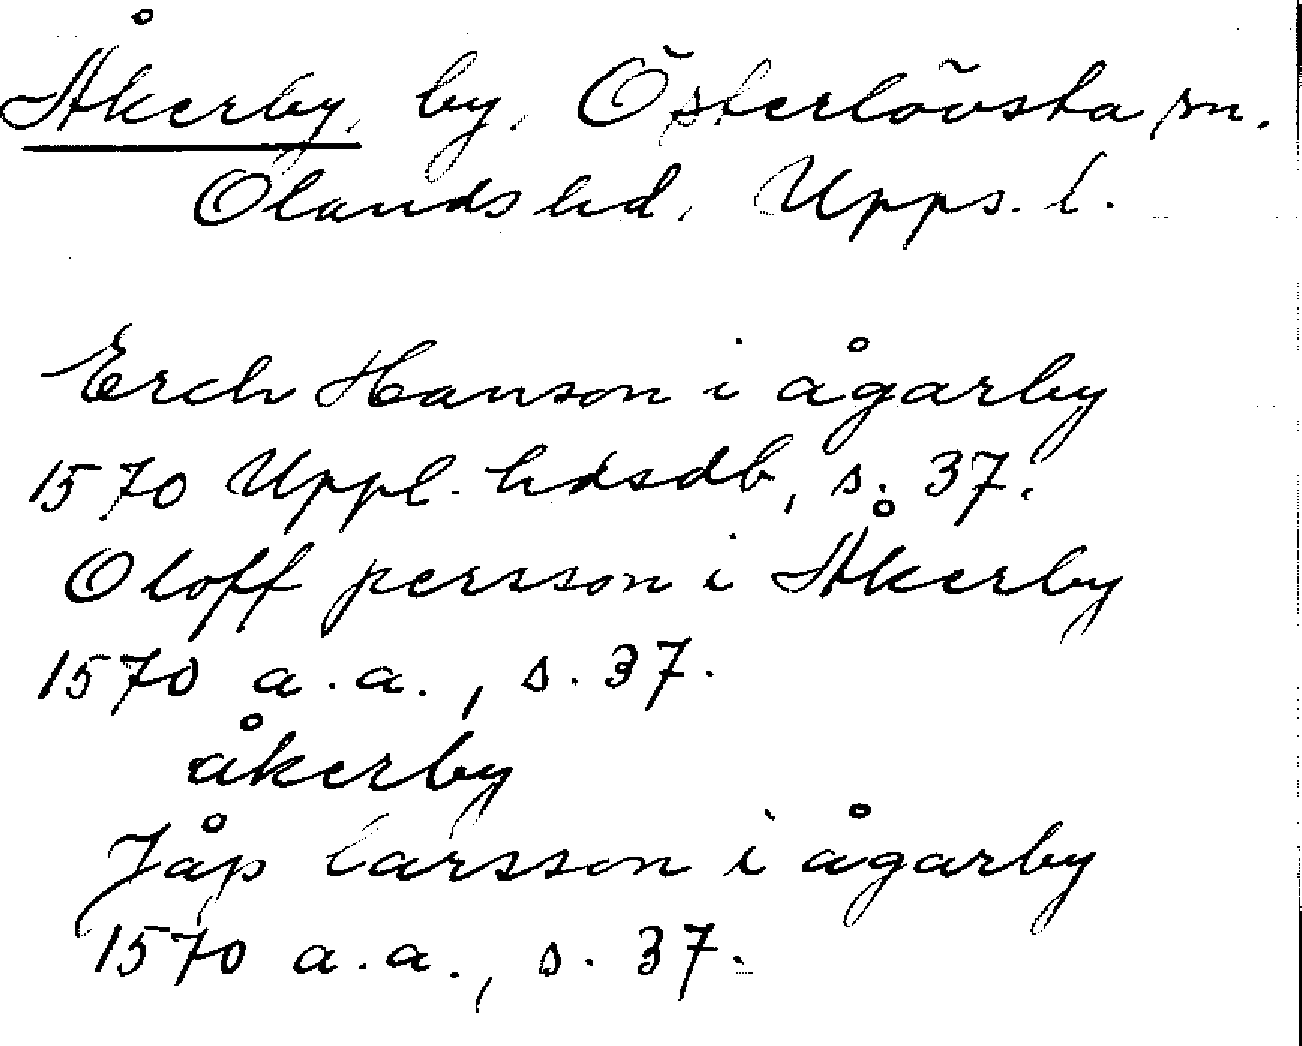 Åkerby, by, Österlövsta sn.
Olands hd, Upps. l.
Erch Hanson i ågarby
1570 Uppl. hdsdb, s. 37.
Oloff persson i Åkerby
1570 a.a., s. 37.
åkerby
Jåp larsson i ågarby
1570 a.a., s. 37.